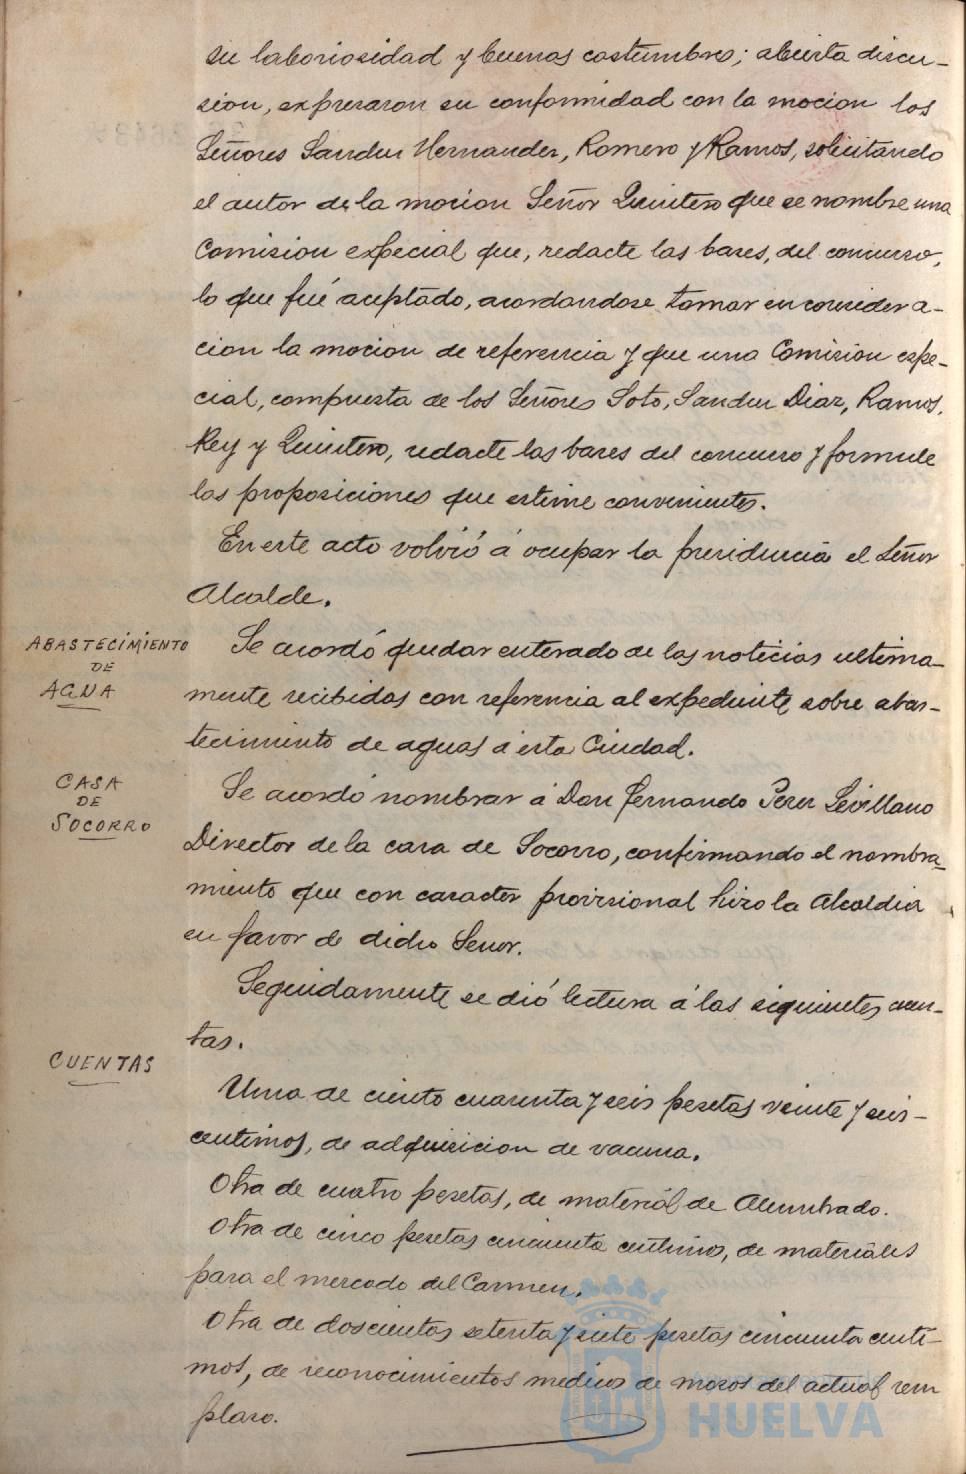 su laboriosidad y buenas costumbres; abierta discu-
sion, expresaron su conformidad con la mocion los
Señores Sanchez Hernandez, Romero y Ramos, solicitando
el autor de la mocion Señor Quintero que se nombre una
Comision especial que, redacte las bases, del concurso,
lo que fué aceptado, acordandose tomar en considera-
cion la mocion de referencia y que una Comision espe-
cial, compuesta de los Señores Soto, Sanchez Diaz, Ramos,
Rey y Quintero, redacte las bases del concurso y formule
las proposiciones que estime convenientes.
En este acto volvió á ocupar la presidencia el Señor
Alcalde.
ABASTECIMIENTO
DE
AGUA
Se acordó quedar enterado de las noticias ultima-
mente recibidas con referencia al expediente sobre abas-
tecimiento de aguas á esta Ciudad.
CASA
DE
SOCORRO
Se acordó nombrar á Don Fernando Perez Sevillano
Director de la casa de Socorro, confirmando el nombra-
miento que con caracter provisional hizo la Alcaldia
en favor de dicho Señor.
Seguidamente se dió lectura á las siguientes cuen-
tas.
CUENTAS
Una de ciento cuarenta y seis pesetas veinte y seis
centimos, de adquisicion de vacuna.
Otra de cuatro pesetas, de material de Alumbrado.
Otra de cinco pesetas cincuenta centimos, de materiales
para el mercado del Carmen.
Otra de doscientas setenta y siete pesetas cincuenta centi-
mos, de reconocimientos medicos de mozos del actual rem
plazo.
HUELVA